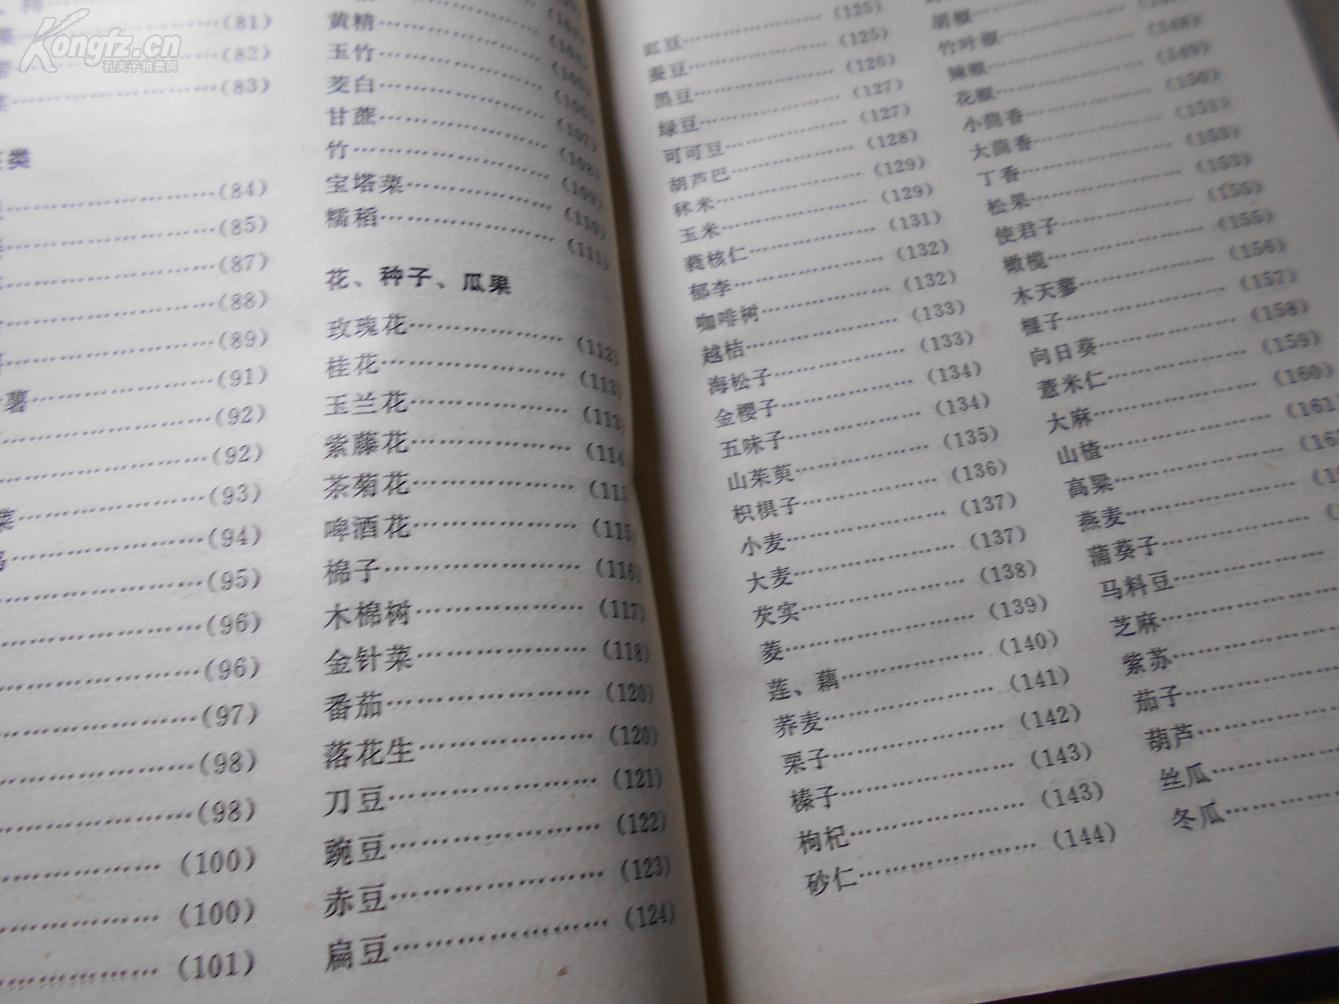 Kongfz.cn
孔夫子拍卖网
(81)
(82)
(83)
类
(84)
(85)
(87)
(88)
(89)
薯 (91)
(92)
(92)
(93)
菜 (94)
(95)
(96)
(96)
(97)
(98)
(98)
(100)
(100)
(101)
黄精
玉竹
茭白
甘蔗 (107)
竹 (108)
宝塔菜 (109)
糯稻 (110)
(111)
花、种子、瓜果
玫瑰花 (112)
桂花 (113)
玉兰花 (113)
紫藤花 (114
茶菊花 (115
啤酒花 (115)
棉子 (116)
木棉树 (117)
金针菜 (118)
番茄 (120)
落花生 (120)
刀豆 (121)
豌豆 (122)
赤豆 (123)
扁豆 (124)
(125)
豇豆 (125)
蚕豆 (126)
黑豆 (127)
绿豆 (127)
可可豆 (128)
胡芦巴 (129)
秫米 (129)
玉米 (131)
蕤核仁 (132)
郁李 (132)
咖啡树 (133)
越桔 (133)
海松子 (134)
金樱子 (134)
五味子 (135)
山茱萸 (136)
枳椇子 (137)
小麦 (137)
大麦 (138)
芡实 (139)
菱 (140)
莲、藕 (141)
荞麦 (142)
栗子 (143)
榛子 (143)
枸杞 (144)
砂仁
胡椒
竹叶椒 (148)
辣椒 (149)
花椒 (150)
小茴香 (151)
大茴香 (153)
丁香 (153)
松果 (155)
使君子 (155)
橄榄 (156)
木天蓼 (157)
榧子 (158)
向日葵 (159)
薏米仁 (160)
大麻 (161)
山楂
高粱
燕麦
蒲葵子
马料豆
芝麻
紫苏
茄子
葫芦
丝瓜
冬瓜